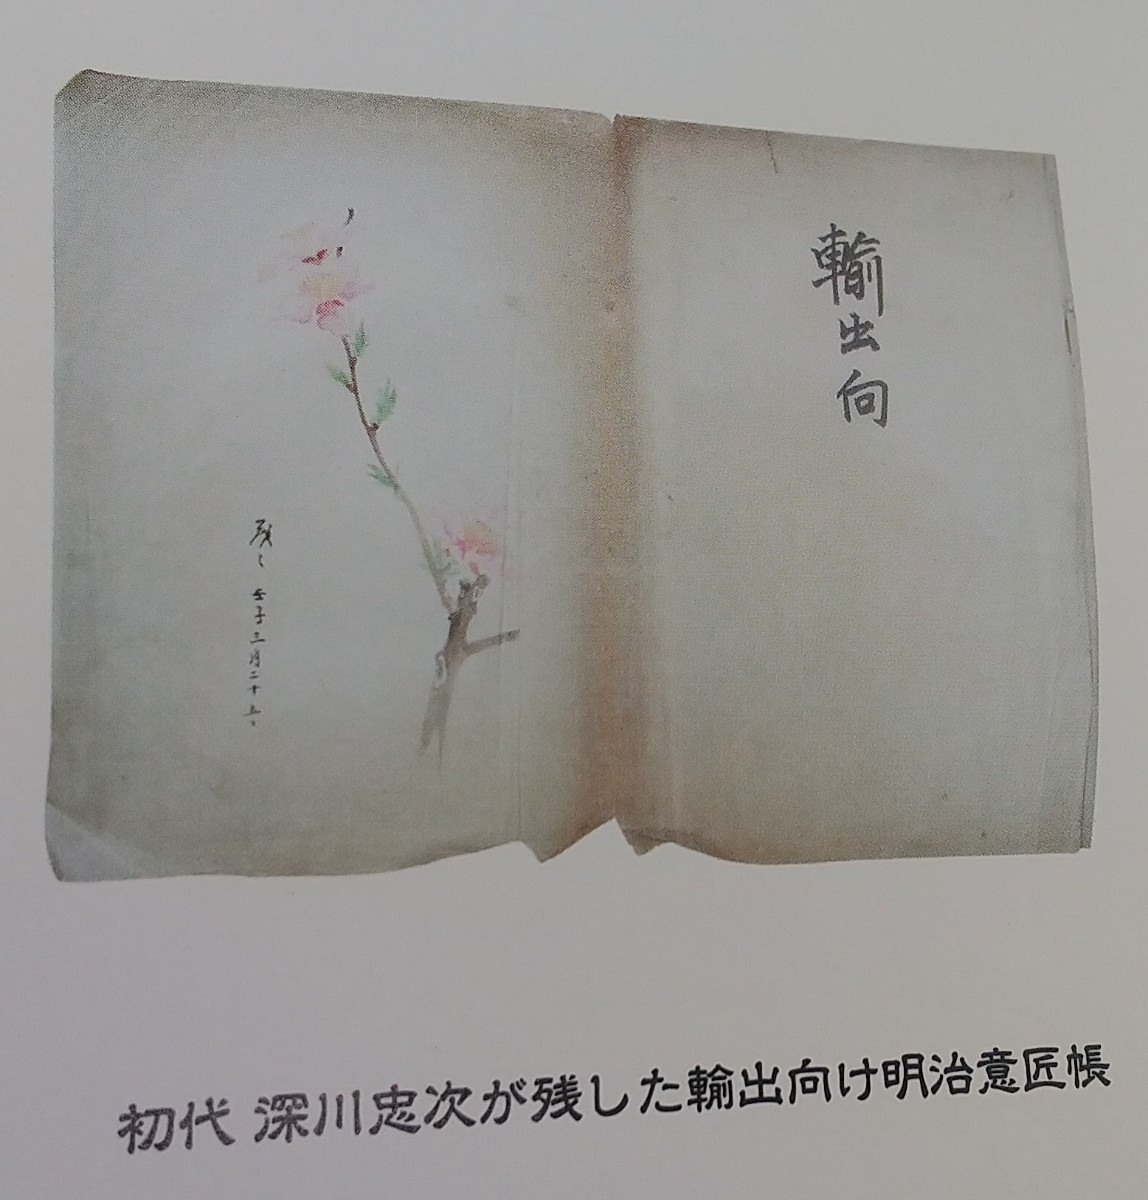 輸出向
壬子三月二十五
初代 深川忠次が残した輸出向け明治意匠帳